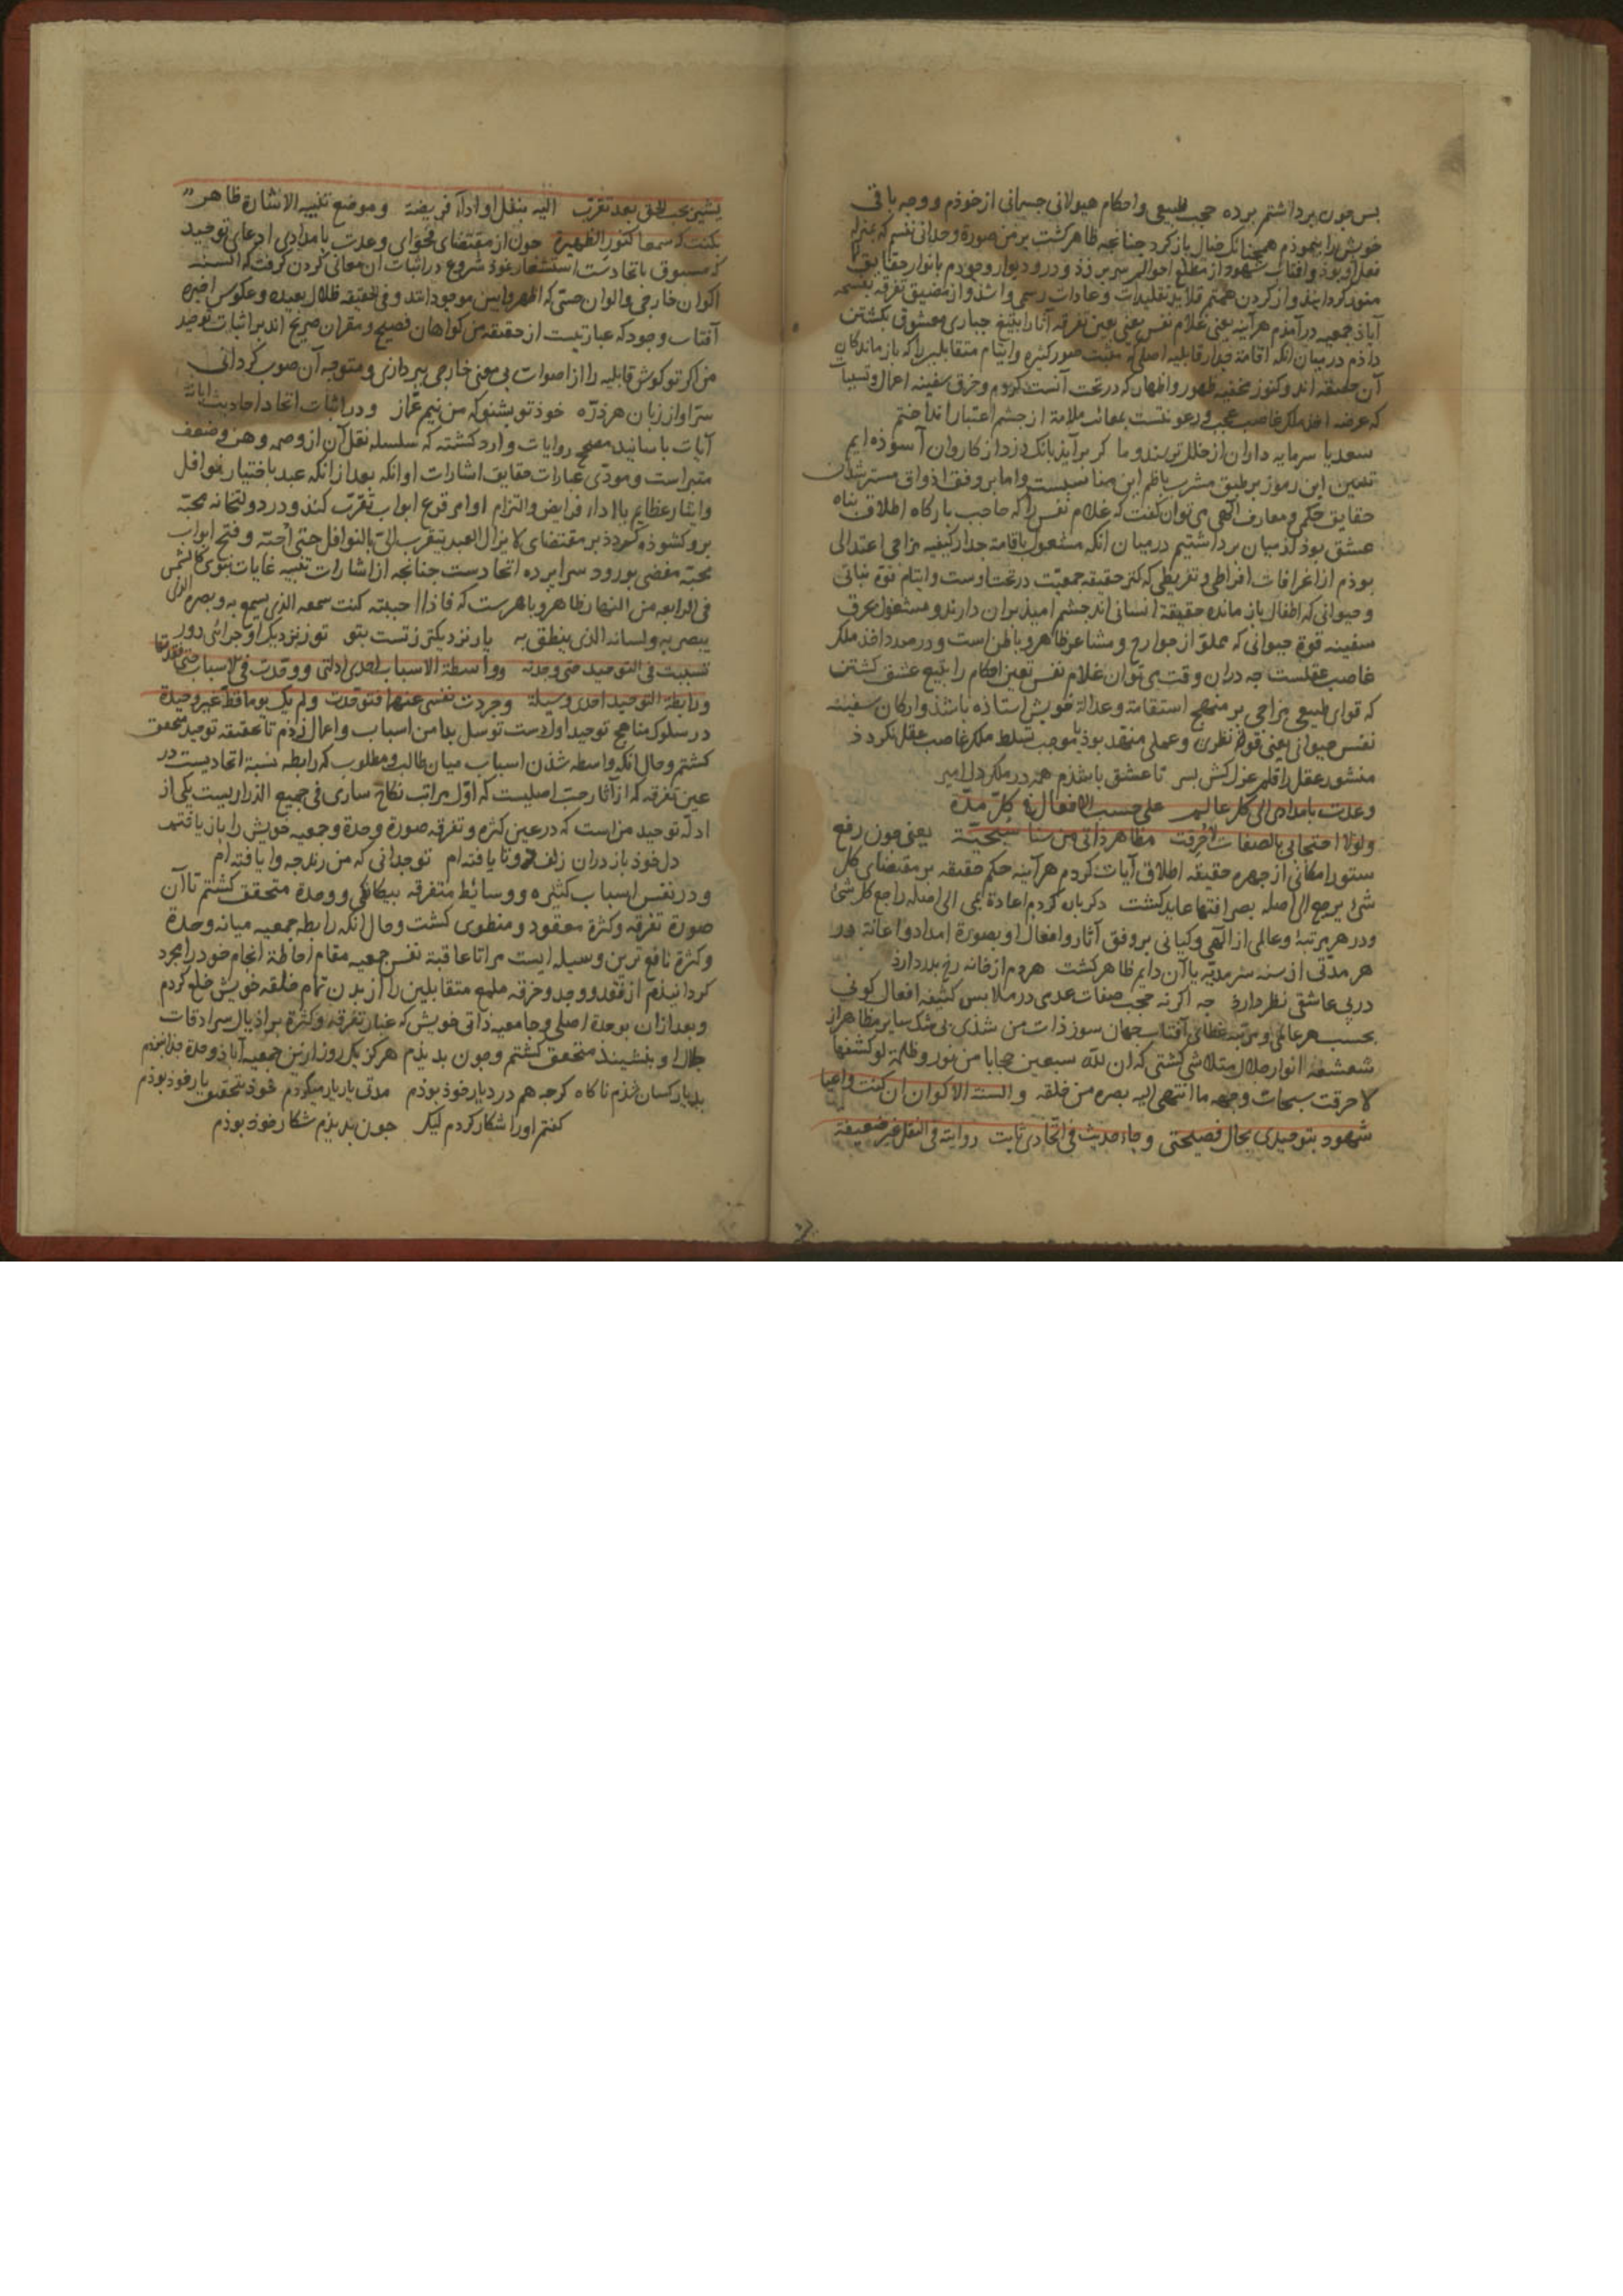 بس چون برداشتم برده حجب طبیعی واحکام هیولانی جسمانی از خوذم ووجه باقی
خویش را بنموذم همچنانک خیال باز کرد چنانچه ظاهر کشت بر من صورة وحدانی نفسم که بمنزله
فعل او بوذ وافتاب شهود از مطلع احوالم سر بر زذ ودر ودیوار وجودم بانوار حقایق
منور کردانیذ واز کردن همتم قلاید تقلیدات وعادات رسمی وا شذ واز مضیق تفرقه
آباذ جمعیه درآمذم هرآینه یعنی غلام نفس یعنی تعین تفرقه آثار را بتیغ جباری معشوقی بکشتن
داذم در میان انکه اقامة جدار قابلیه اصلی که صور کثیره وایتام متقابلین را که باز ماندکان
آن حقیقه اند وکنوز مخفیه ظهور واظهار که در تحت آنست کردم وخرق سفینه اعمال ونسیات
که عرضه اخذ ملک غاصب عجب ورعونتست بمعانت ملامة از چشم اعتبار انداختم
سعدیا سرمایه داران از خلل ترسند وما کر برآید بانک دزد از کاروان آسوذه ایم
تعیین این رموز بر طبق مشرب ناظم این مناسبست واما بر وفق اذواق مسترشدان
حقایق حکمی ومعارف الهی می توان کفت که غلام نفس را که حاجب بارکاه اطلاق پناه
عشق بوذ از میان برداشتیم در میان انکه مشغول باقامة جدار کیفیه مزاجی اعتدالی
بوذم از انحرافات افراطی وتفریطی که کنز حقیقه جمعیّت در تحت اوست وایتام قوة نباتی
وحیوانی که اطفال باز مانده حقیقة انسانی اند چشم امیذ بران دارند ومشغول بخرق
سفینه قوة حیوانی که مملوّ از جوارح ومشاعر ظاهر وباطن است ودر صدد اخذ ملک
غاصب عقلست چه دران وقت می توان غلام نفس تعین احکام را بتیغ عشق کشتن
که قوای طبیعی مزاجی بر منهج استقامة وعدالة خویش استاذه باشذ وارکان سفینه
نفس حیوانی یعنی قوة نظری وعملی منعقد بوذ تا موجب تسلط ملک غاصب عقل نکردذ
منشور عقل را قلم عزل کش بسر تا عشق باشذم همه در ملک دل امیر
وعدت بامدادی الی کل عالم علی حسب الافعال فی کلّ مدّة
ولولا احتجابی بالصفات لاُحرقت مظاهر ذاتی من سناء سُبحیّة یعنی چون رفع
ستور امکانی از چهره حقیقه اطلاق آیات کردم هرآینه حکم حقیقه بر مقتضای کل
شئ یرجع الی اصله بصرافتها عاید کشت دکرباره کردم اعادة یمی الی اصله راجع کل شئ
ودر هر مرتبة وعالمی از الهی وکیانی بر وفق آثار وافعال او بصورة امداد واعانة در
هر مدّتی از سنه سرمدیّه یا آن دایم ظاهر کشت هر دم از خانه رخ بدر دارذ
در پی عاشقی نظر دارذ چه اکر نه حجب صفات عدمی در ملابس کثیفه افعال کونی
بحسب هر عالمی ومرتبه غطای آفتاب جهان سوز ذات من شذی بی شک سایر مظاهر از
شعشعه انوار جلال متلاشی کشتی که ان لله سبعین حجابا من نور وظلمة لو کشفها
لاحرقت سبحات وجهه ما انتهی الیه بصره من خلقه والسنة الاکوان ان کنت واعیا
شهود بتوحیدی بحال فصیحتی وجاء حدیث فی اتحادی ثابت روایته فی النقل غیر ضعیفة
یشیر بحب الحق بعد تقرّب الیه بنفل او اداء فریضة وموضع تنبیه الاشارة ظاهر
بکنت له سمعا کنور الظهیرة چون از مقتضای فحوای وعدت بامدادی ادعای توحید
که مسبوق باتحادست استشعار نموذ شروع در اثبات آن معانی کردن کرفت که السنه
اکوان خارجی والوان حسّی که اظهر وابین موجوداتند وفی الحقیقه ظلال بعیده وعکوس اخیره
آفتاب وجود که عبارتیست از حقیقه من کواهان فصیح ومقران صریح اند بر اثبات توحید
من اکر تو کوش قابلیه را از اصوات بی معنی خارجی بپردازی ومتوجه آن صوب کردانی
سرّ او از زبان هر ذرّه خوذ تو بشنو که من نیم غمّاز ودر اثبات اتحاد احادیث
آیات باسانید مصحح روایات وارد کشته که سلسله نقل آن از وصمه وهن وضعف
متبراست ومودّی عبارات حقایق اشارات او انکه بعد از انکه عبد باختیار نوافل
وایثار عظایم یا اداء فرایض والتزام اوامر قرع ابواب تقرّب کند ودر دولتخانه محبّة
بر وکشوذه کردذ بر مقتضای لا یزال العبد یتقرب الیّ بالنوافل حتی اُحبّه وفتح ابواب
محبّة مفضی بورود سرابرده اتحادست چنانچه از اشارات تنبیه غایات نبوی کالشمس
فی الرابعه من النهار ظاهر وباهرست که فاذا احببته کنت سمعه الذی یسمع به وبصره الذی
یبصر به ولسانه الذی ینطق به یار نزدیکتر ز تست بتو تو ز نزدیک او چرائی دور
تسببت فی التوحید حتی وجدته وواسطة الاسباب احدی ادلتی ووحدت فی الاسباب حتی فقدتها
ورابطة التوحید اجدی وسیلة وجردت نفسی عنهما فتوحدت ولم یک یوما قط غیر وحیدة
در سلوک مناهج توحید اول دست توسل بدامن اسباب واعمال زذم تا بحقیقه توحید متحقق
کشتم وحال انکه واسطه شذن اسباب میان طالب ومطلوب که رابطه نسبة اتحادیست در
عین تفرقه که از آثار حبّ اصلیست که اوّل مراتب نکاح ساری فی جمیع الذراریست یکی از
ادلّه توحید من است که در عین کثره وتفرقه صورة وحدة وجمعیه خویش را باز یافتم
دل خوذ باز دران زلف دوتا یافته ام تو چدانی که من رند چه وا یافته ام
ودر نفس اسباب کثیره ووسائط متفرقه بیکانکی ووحدة متحقق کشتم تا آن
صورة تفرقه وکثرة مفقود ومنطوی کشت وحال انکه رابطه جمعیه میانه وحدة
وکثرة نافع ترین وسیله ایست مرا تا عاقبة نفس جمعیه مقام احاطة انجام خود را مجرد
کردانیذم از فقد ووجد وخرقه ملمع متقابلین را از بدن تمام خلقه خویش خلع کردم
وبعد ازان بوحدة اصلی وجامعیه ذاتی خویش که غبار تفرقه وکثرة بر اذیال سرادقات
جلال او ننشیند متحقق کشتم وچون بدیذم هرکز یک روز ازین جمعیه آباذ وحدة جدا نبوذم
بدیار کسان شذم ناکاه کرچه هم در دیار خوذ بوذم مدتی یار یار میکردم خوذ بتحقیق یار خوذ بوذم
کفتم اورا شکار کردم لیک چون بدیذم شکار خوذ بوذم